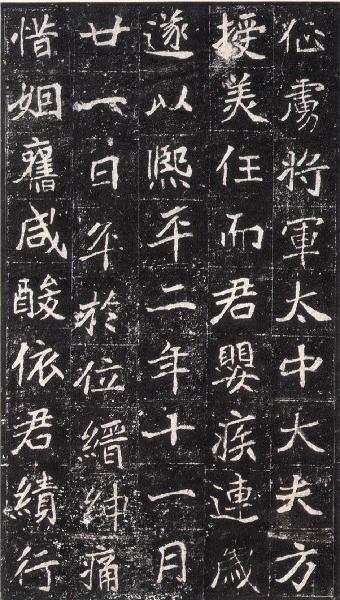 征虜将軍太中大夫方
授美任而君嬰疾連歲
遂以熙平二年十一月
廿一日卒於位縉紳痛
惜姻舊咸酸依君績行